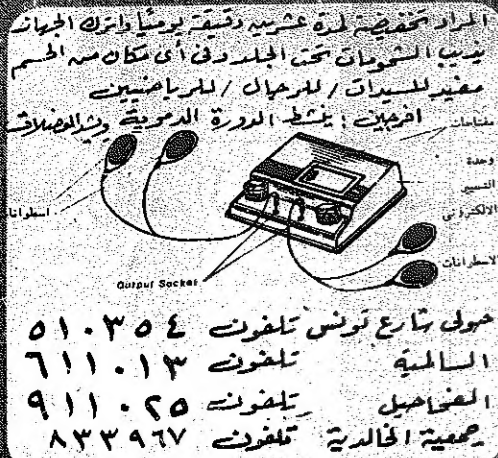 المراد تخفيضه لمدة عشرين دقيقة يومياً واترك الجهاز
يذيب الشحومات تحت الجلد وفى أى مكان من الجسم
مفيد للسيدات / للرجال / للرياضيين
اخرجين : ينشط الدورة الدموية ويشد العضلات
مفتاحات
وحدة
التسيير
الالكترونى
اسطوانات
الاسطوانات
Output Socket
حولى شارع تونس تلفون ٥١٠٣٥٤
السالمية تلفون ٦١١٠١٣
الفحاحيل تلفون ٩١١٠٢٥
جمعية الخالدية تلفون ٨٣٣٩٦٧